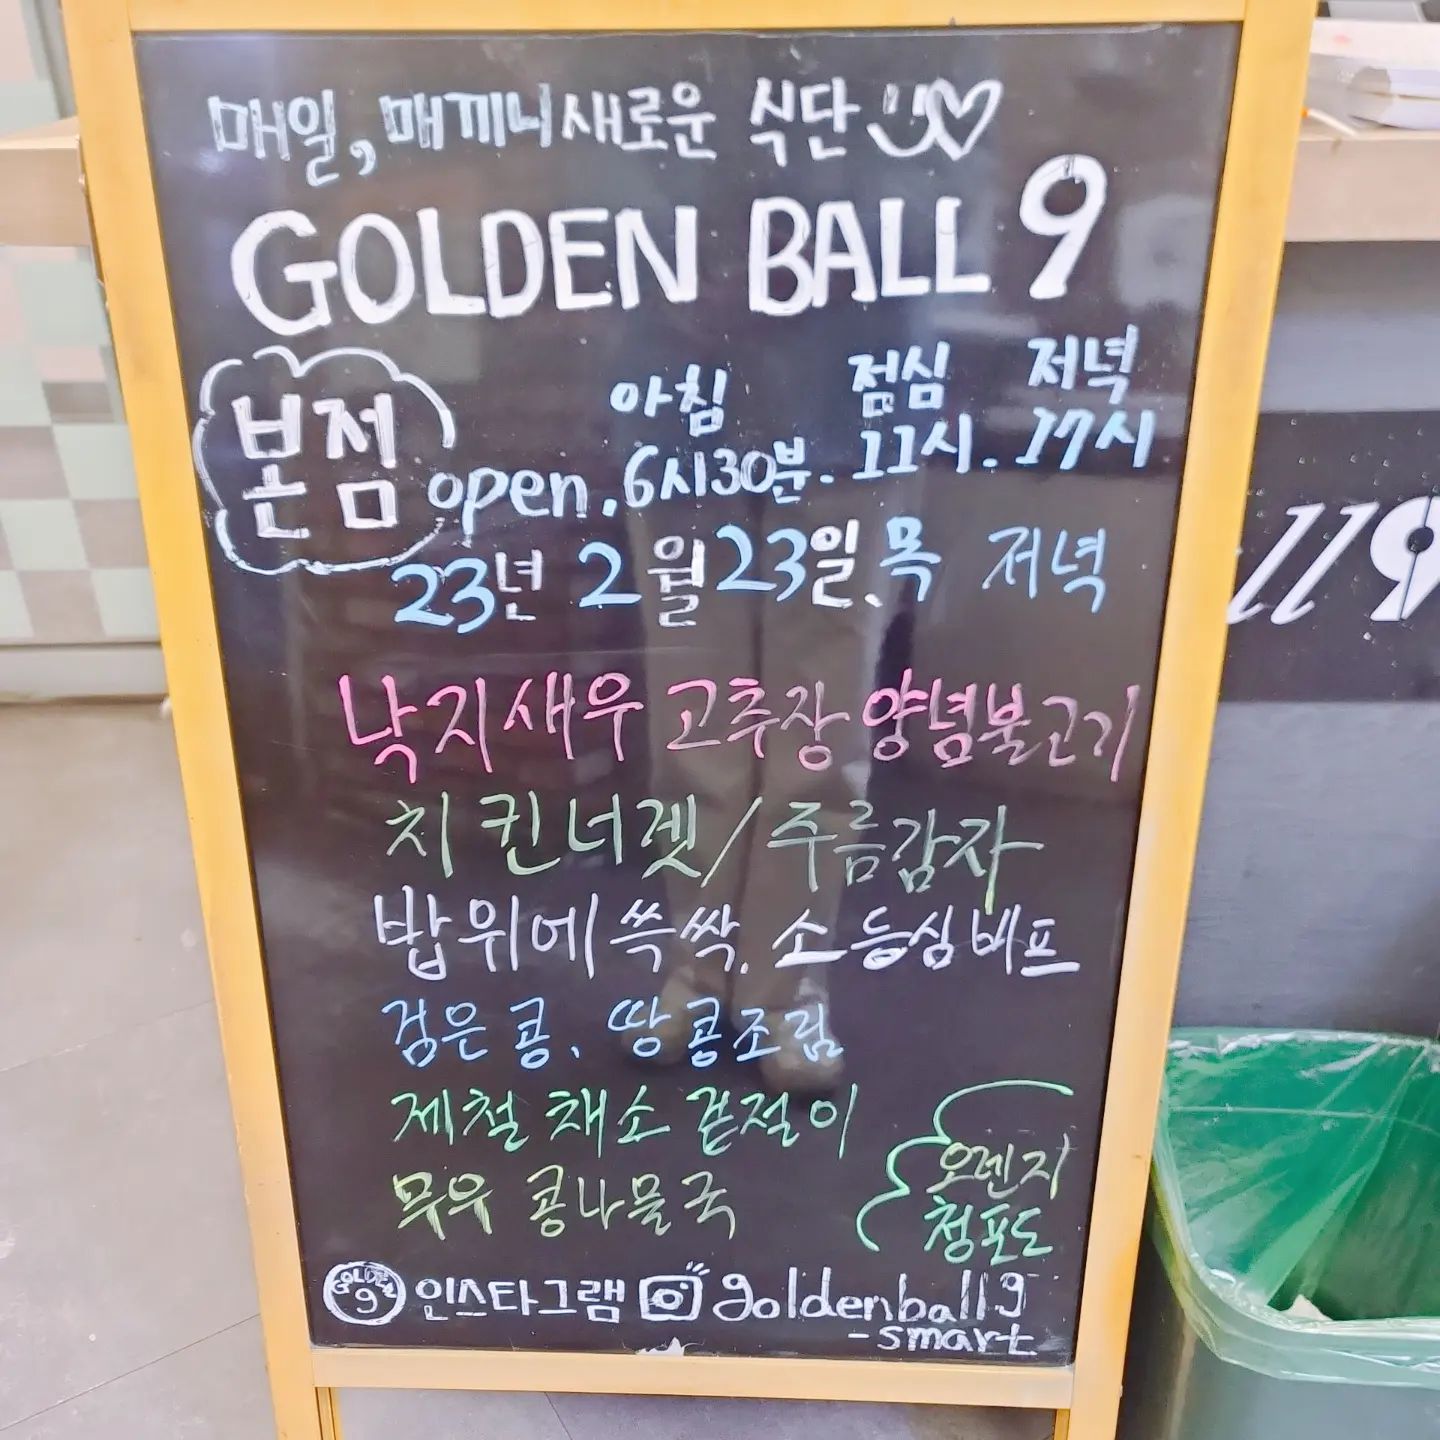 매일, 매끼니 새로운 식단
GOLDEN BALL 9
본점
아침 점심 저녁
open. 6시30분. 11시. 17시
23년 2월 23일. 목 저녁
낙지새우 고추장 양념불고기
치킨너겟/주름감자
밥위에 쓱싹. 소등심비프
검은콩. 땅콩조림
제철 채소 겉절이
무우 콩나물국
오렌지
청포도
GOLDEN 9 인스타그램 goldenball9
-smart
ll9